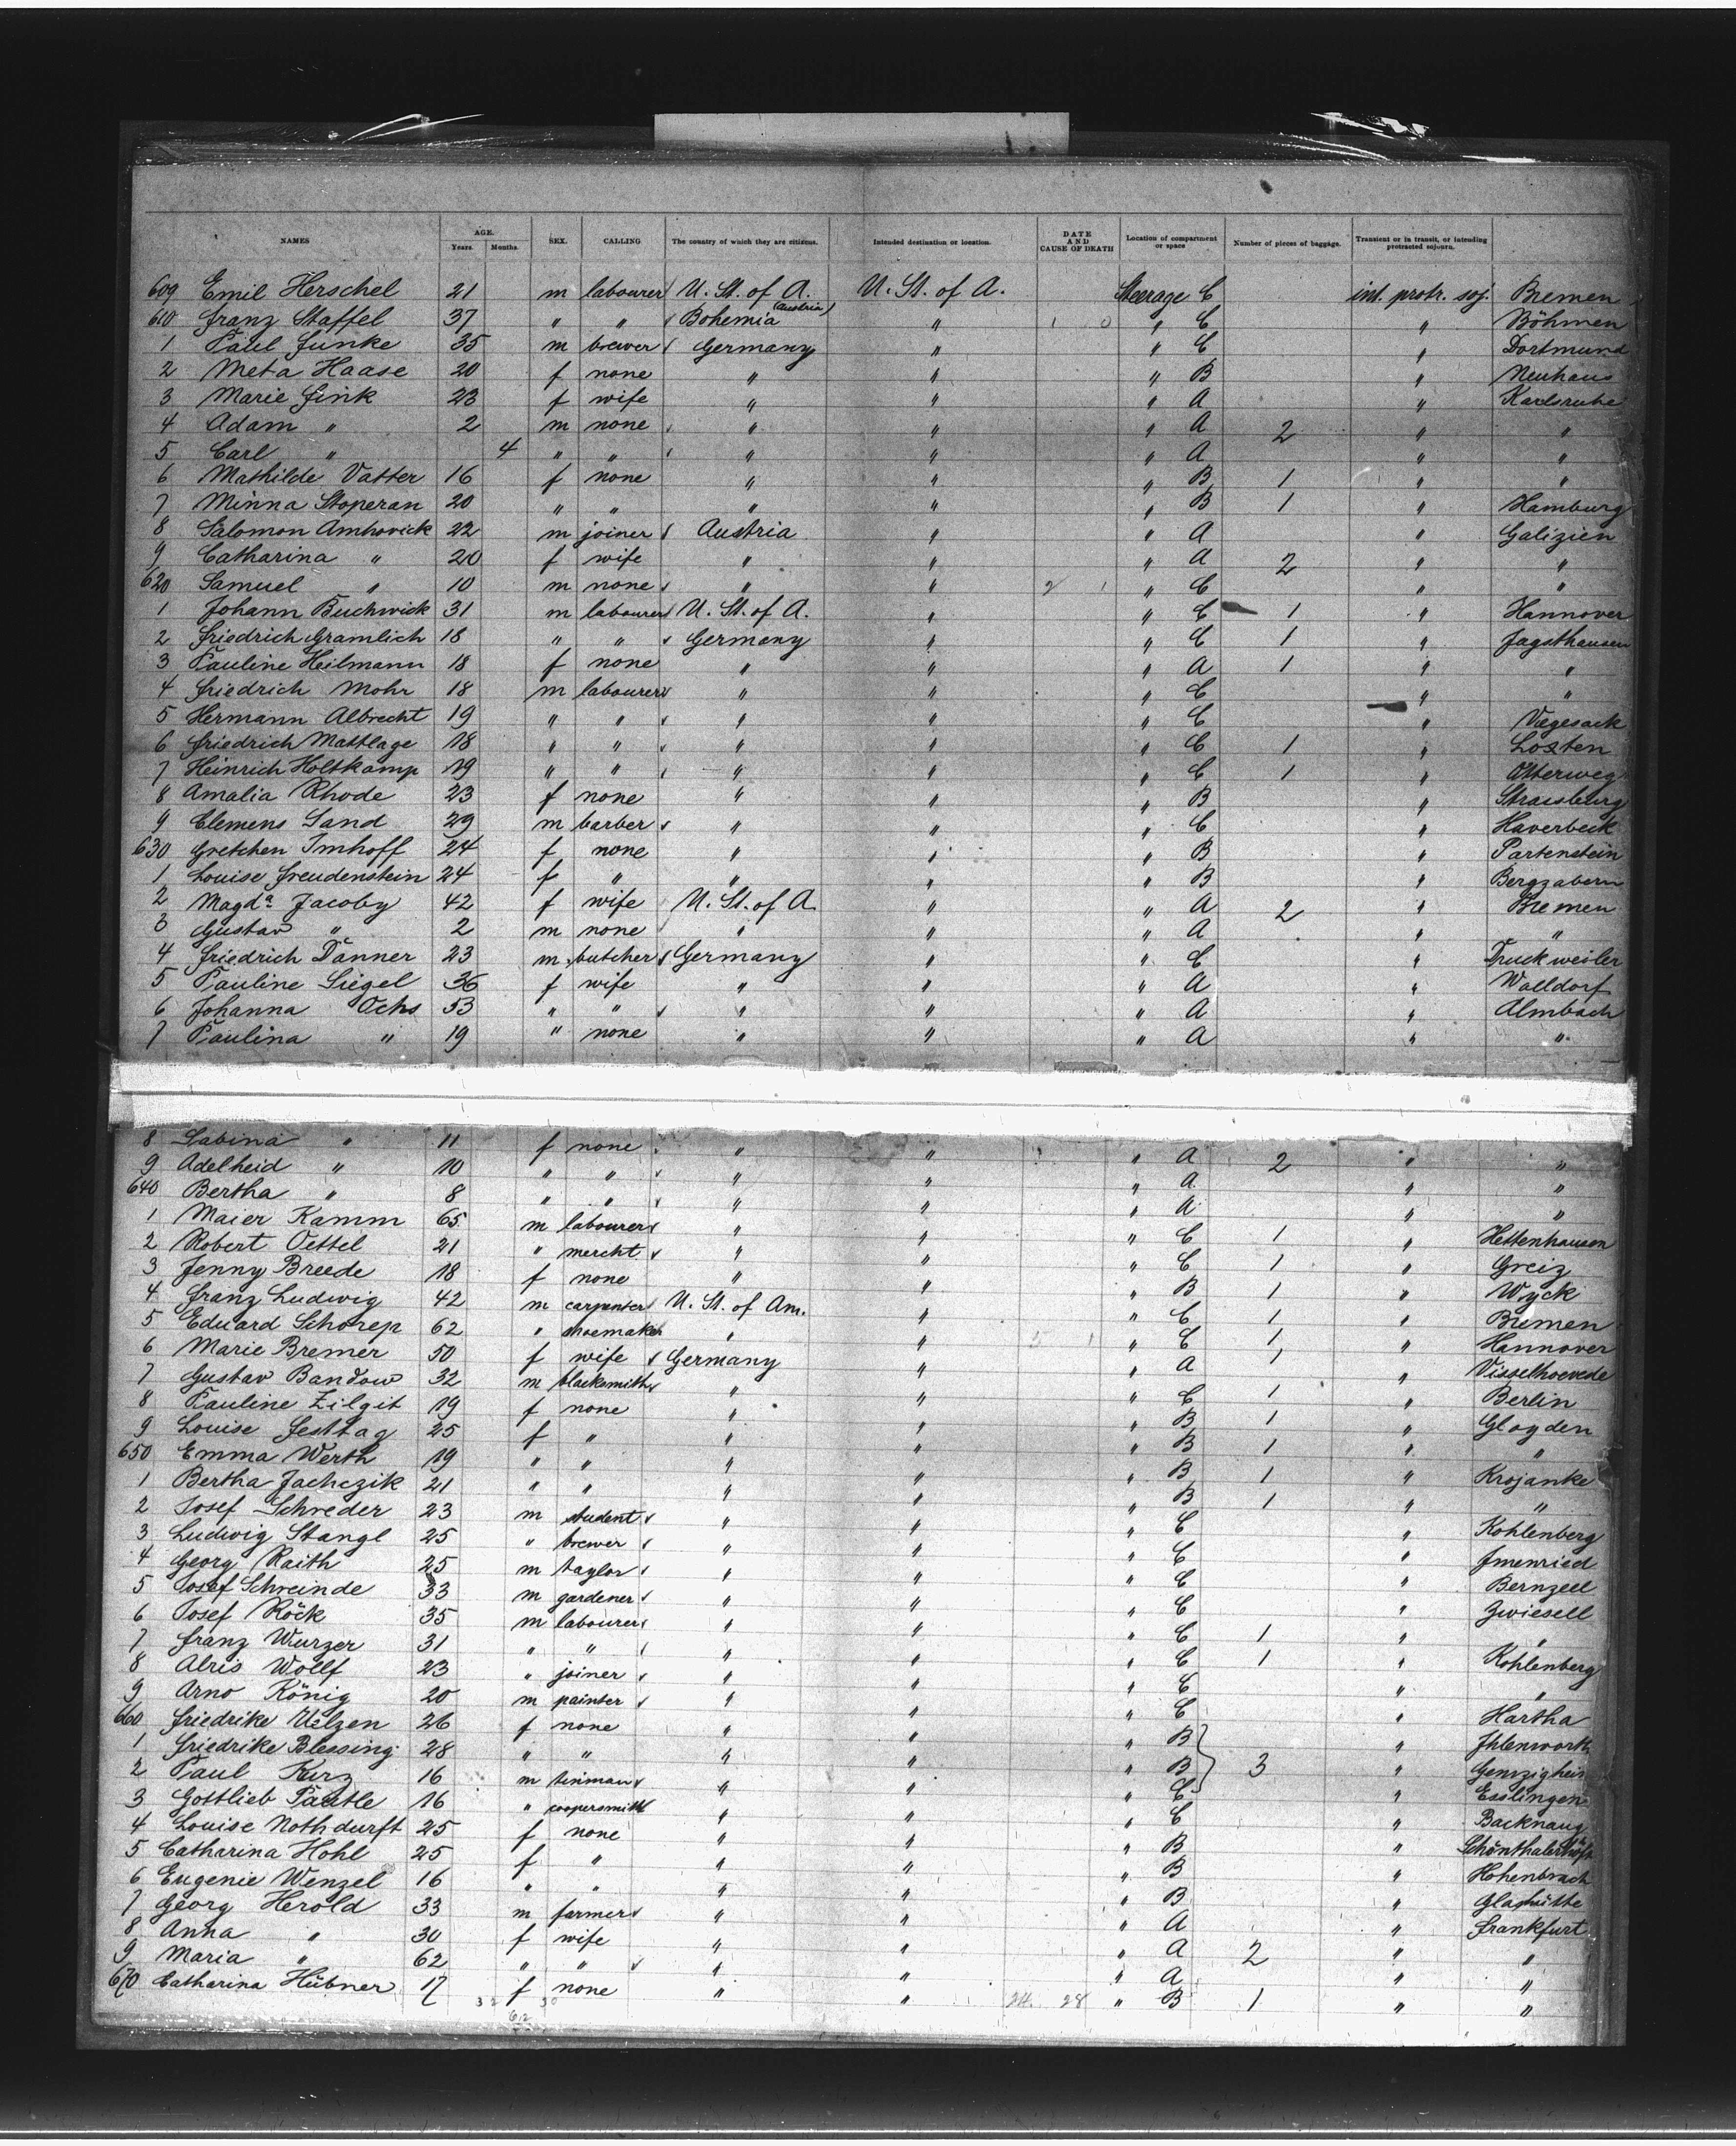 NAMES AGE. Years. Months. SEX. CALLING The country of which they are citizens. Intended destination or location. DATE AND CAUSE OF DEATH Location of compartment or space Number of pieces of baggage. Transient or in transit, or intending protracted sojourn.
609 Emil Herschel 21 m labourer U. St. of A. U. St. of A. Steerage C int. protr. soj. Bremen
610 Franz Staffel 37 " " Bohemia (Austria) " " C " Böhmen
1 Paul Funke 35 m brewer Germany " " C " Dortmund
2 Meta Haase 20 f none " " " B " Neuhaus
3 Marie Fink 23 f wife " " " A " Karlsruhe
4 Adam " 2 m none " " " A 2 " "
5 Carl " 4 " " " " " A " "
6 Mathilde Vatter 16 f none " " " B 1 " "
7 Minna Stoperan 20 " " " " " B 1 " Hamburg
8 Salomon Amhovick 22 m joiner Austria " " A " Galizien
9 Catharina " 20 f wife " " " A 2 " "
620 Samuel " 10 m none " " 2 1 " C " "
1 Johann Buchwick 31 m labourer U. St. of A. " " C 1 " Hannover
2 Friedrich Gramlich 18 " " Germany " " C 1 " Jagsthausen
3 Pauline Heilmann 18 f none " " " A 1 " "
4 Friedrich Mohr 18 m labourer " " " C " "
5 Hermann Albrecht 19 " " " " " C " Vegesack
6 Friedrich Mattlage 18 " " " " " C 1 " Losten
7 Heinrich Holtkamp 19 " " " " " C 1 " Atterweg
8 Amalia Rhode 23 f none " " " B " Strassburg
9 Clemens Sand 29 m barber " " " C " Haverbeck
630 Gretchen Imhoff 24 f none " " " B " Partenstein
1 Louise Freudenstein 24 f " " " " B " Bergzabern
2 Magda Jacoby 42 f wife U. St. of A. " " A 2 " Bremen
3 Gustav " 2 m none " " " A " "
4 Friedrich Danner 23 m butcher Germany " " C " Truckweiler
5 Pauline Siegel 36 f wife " " " A " Walldorf
6 Johanna Ochs 53 " " " " " A " Almbach
7 Paulina " 19 " none " " " A " "
8 Sabina " 11 f none " " " A 2 " "
9 Adelheid " 10 " " " " " A " "
640 Bertha " 8 " " " " " A " "
1 Maier Kamm 65 m labourer " " " C 1 " Hettenhausen
2 Robert Oettel 21 " mercht " " " C 1 " Greiz
3 Jenny Breede 18 f none " " " B 1 " Wyck
4 Franz Ludwig 42 m carpenter U. St. of Am. " " C 1 " Bremen
5 Eduard Schorep 62 " shoemaker " " " C 1 " Hannover
6 Marie Bremer 50 f wife Germany " " A 1 " Visselhoevede
7 Gustav Bandow 32 m blacksmith " " " C 1 " Berlin
8 Pauline Zilgit 19 f none " " " B 1 " Gloyden
9 Louise Festtag 25 f " " " " B 1 " "
650 Emma Werth 19 " " " " " B 1 " Krojanke
1 Bertha Jachczik 21 " " " " " B 1 " "
2 Josef Schreder 23 m student " " " C " Kohlenberg
3 Ludwig Stangl 25 " brewer " " " C " Jmenried
4 Georg Raith 25 m taylor " " " C " Bernzell
5 Josef Schreinde 33 m gardener " " " C " Zwiesell
6 Josef Röck 35 m labourer " " " C 1 " "
7 Franz Wurzer 31 " " " " " C 1 " Kohlenberg
8 Alris Wollf 23 " joiner " " " C " "
9 Arno König 20 m painter " " " C " Hartha
660 Friedrike Uelzen 26 f none " " " B " Jhlenworth
1 Friedrike Blessing 28 " " " " " B 3 "
2 Paul Kurz 16 m tinman " " " C " Esslingen
3 Gottlieb 16 " coopersmith " " " C " Backnang
4 Louise Nothdurft 25 f none " " " B "
5 Catharina Hohl 25 f " " " " B " Hohenbrach
6 Eugenie Wenzel 16 " " " " " B " Glashütte
7 Georg Herold 33 m farmer " " " A " Frankfurt
8 Anna " 30 f wife " " " A 2 " "
9 Maria " 62 " " " " " A " "
670 Catharina Hübner 17 f none " " 24 28 " B 1 " "
32 30
62